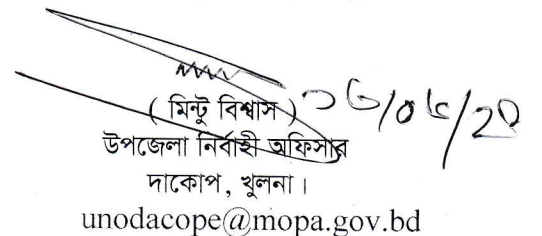 ( মিন্টু বিশ্বাস )
উপজেলা নির্বাহী অফিসার
দাকোপ, খুলনা।
unodacope@mopa.gov.bd